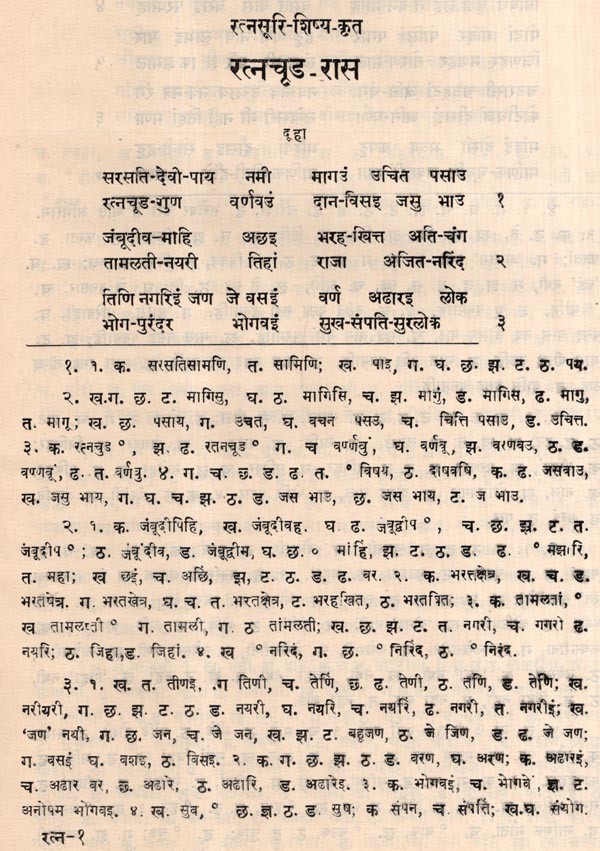 रत्नसूरि-शिष्य-कृत
रत्नचूड-रास
दूहा
सरसति-देवी-पाय नमी मागउं उचित पसाउ
रत्नचूड-गुण वर्णवउं दान-विसइ जसु भाउ १
जंबूदीव-माहि अछइ भरह-खित्त अति-चंग
तामलती-नयरी तिहां राजा अजित-नरिंद २
तिणि नगरिइं जण जे वसइं वर्ण अढारइ लोक
भोग-पुरंदर भोगवइं सुख-संपति-सुरलोक ३
१. १. क. सरसतिसामणि, त. सामिणि; ख. पाइ, ग. घ. छ. झ. ट. ठ. पय.
२. ख.ग. छ. ट. मागिसु, घ. ठ. मागिसि, च. झ. मागुं, ड. मागिस, ढ. मागु,
त. मागू; ख. छ. पसाय, ग. उचत, घ. वचन पसउ, च. चिंति पसाउ, ड. उचित्त.
३. क. रत्नचुड°, झ. ट. रतनचूड° ग. च वर्ण्णवुं, घ. वर्णवू, झ. वरणवउ, ठ. ड.
वण्णवूं, ढ. त. वर्णवु. ४. ग. च. छ. ड. ढ. त. ° विषय, ठ. दीषवषि, क. ढ. जसवाउ,
ख. जसु भाय, ग. घ. च. झ. ठ. ड. जस भाउ, छ. जस भाय, ट. जे भाउ,
२. १. क. जंबूदीपिहि, ख. जंबूदीवह, घ. ढ. जंबूद्वीप°, च. छ. झ. ट. त.
जंबूदीप°; ठ. जंबूदीव, ड. जंबूद्वीम, घ. छ. ० मांहिं, झ. ट. ठ. ड. ढ. ° मझारि,
त. महा; ख छइं, च. अछिं, झ. ट. ठ. ड. ढ वर. २. क. भरतक्षेत्र, ख. च. ड.
भरतषेत्र. ग. भरतखेत्र, घ. च. त. भरतक्षेत्र, ट. भरहखित, ठ. भरतषित; ३. क. तामलतां, °
ख तामलत्ती ° ग. तामली, ग. ठ तांमलती; ख. छ. झ. ट. त. नगरी, च. गगरी ढ.
नयरि; ठ. जिहा,ड. जिहां. ४. ख ° नरिंद, ग. छ.° निरिंद, ठ. ° निरंद.
३. १. ख. त. तीणइ, ग तिणी, च. तेणिं, छ. ढ. तेणी, ठ. तणि, ड. तेणि; ख.
नरीयरी, ग. छ. झ. ट. ड. नयरी, घ. नयरि, च. नयरिं, ढ. नगरी, त. नगरीइं; ख.
‘जण’ नथी, ग. छ. जन, च. जे जन, ख. झ. ट. बहूजण, ठ. जे जिण, ड. ढ. जे जण;
ग. वसइं घ. वशइ, ठ. विसइ. २. क. ग. छ. झ. ठ. ड. वरण, घ. अरण; क. अढारइं,
च. अढार वर, छ. अढारे, ठ. अढारि, ड. अढारेइ. ३. क. भोगवइं, च. भोगवे, झ. ट.
अनोपम भोगवइ. ४. ख. सुव, ° छ. झ. ठ. ड. सुष; क संपन, च संपति; ख.घ. संयोग.
रत्न-१